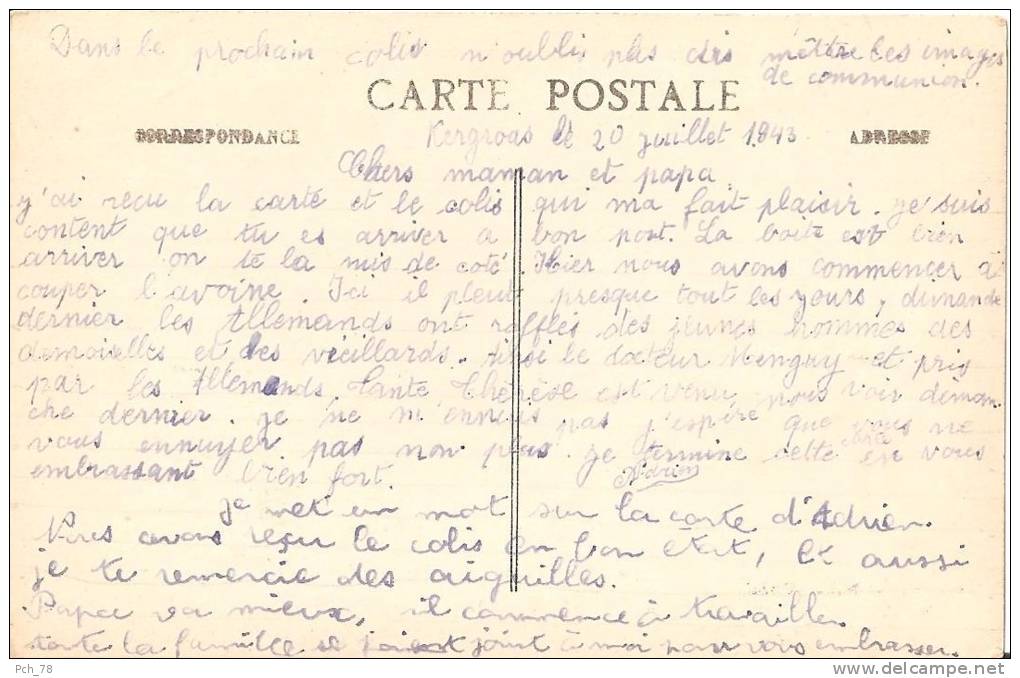 Dans le prochain colis n'oublis pas des mêttre les images
de communion.
CARTE POSTALE
CORRESPONDANCE
ADRESSE
Kergroas le 20 juillet 1943
Chers maman et papa
y'ai reçu la carte et le colis qui ma fait plaisir. je suis
content que tu es arriver a bon port. La boite est bien
arriver on te la mis de coté. Hier nous avons commencer à
couper l'avoine. Ici il pleut presque tout les yours, dimande
dernier les Allemands ont raffles des jeunes hommes des
demoiselles et des vieillards. Ainsi le docteur Menguy et pris
par les Allemands. tante Thérèse est venu nous voir diman
che dernier. je ne m'ennuis pas j'espère que vous ne
vous ennuyer pas non plus. je termine cette carte en vous
embrassant bien fort.
Adrien
je met un mot sur la carte d'Adrien.
Nous avons reçu le colis en bon état, et aussi
je te remercie des aiguilles.
Papa va mieux, il commence à travailler
toute la famille se joint à moi pour vous embrasser.
Pch_78
delcampe.net